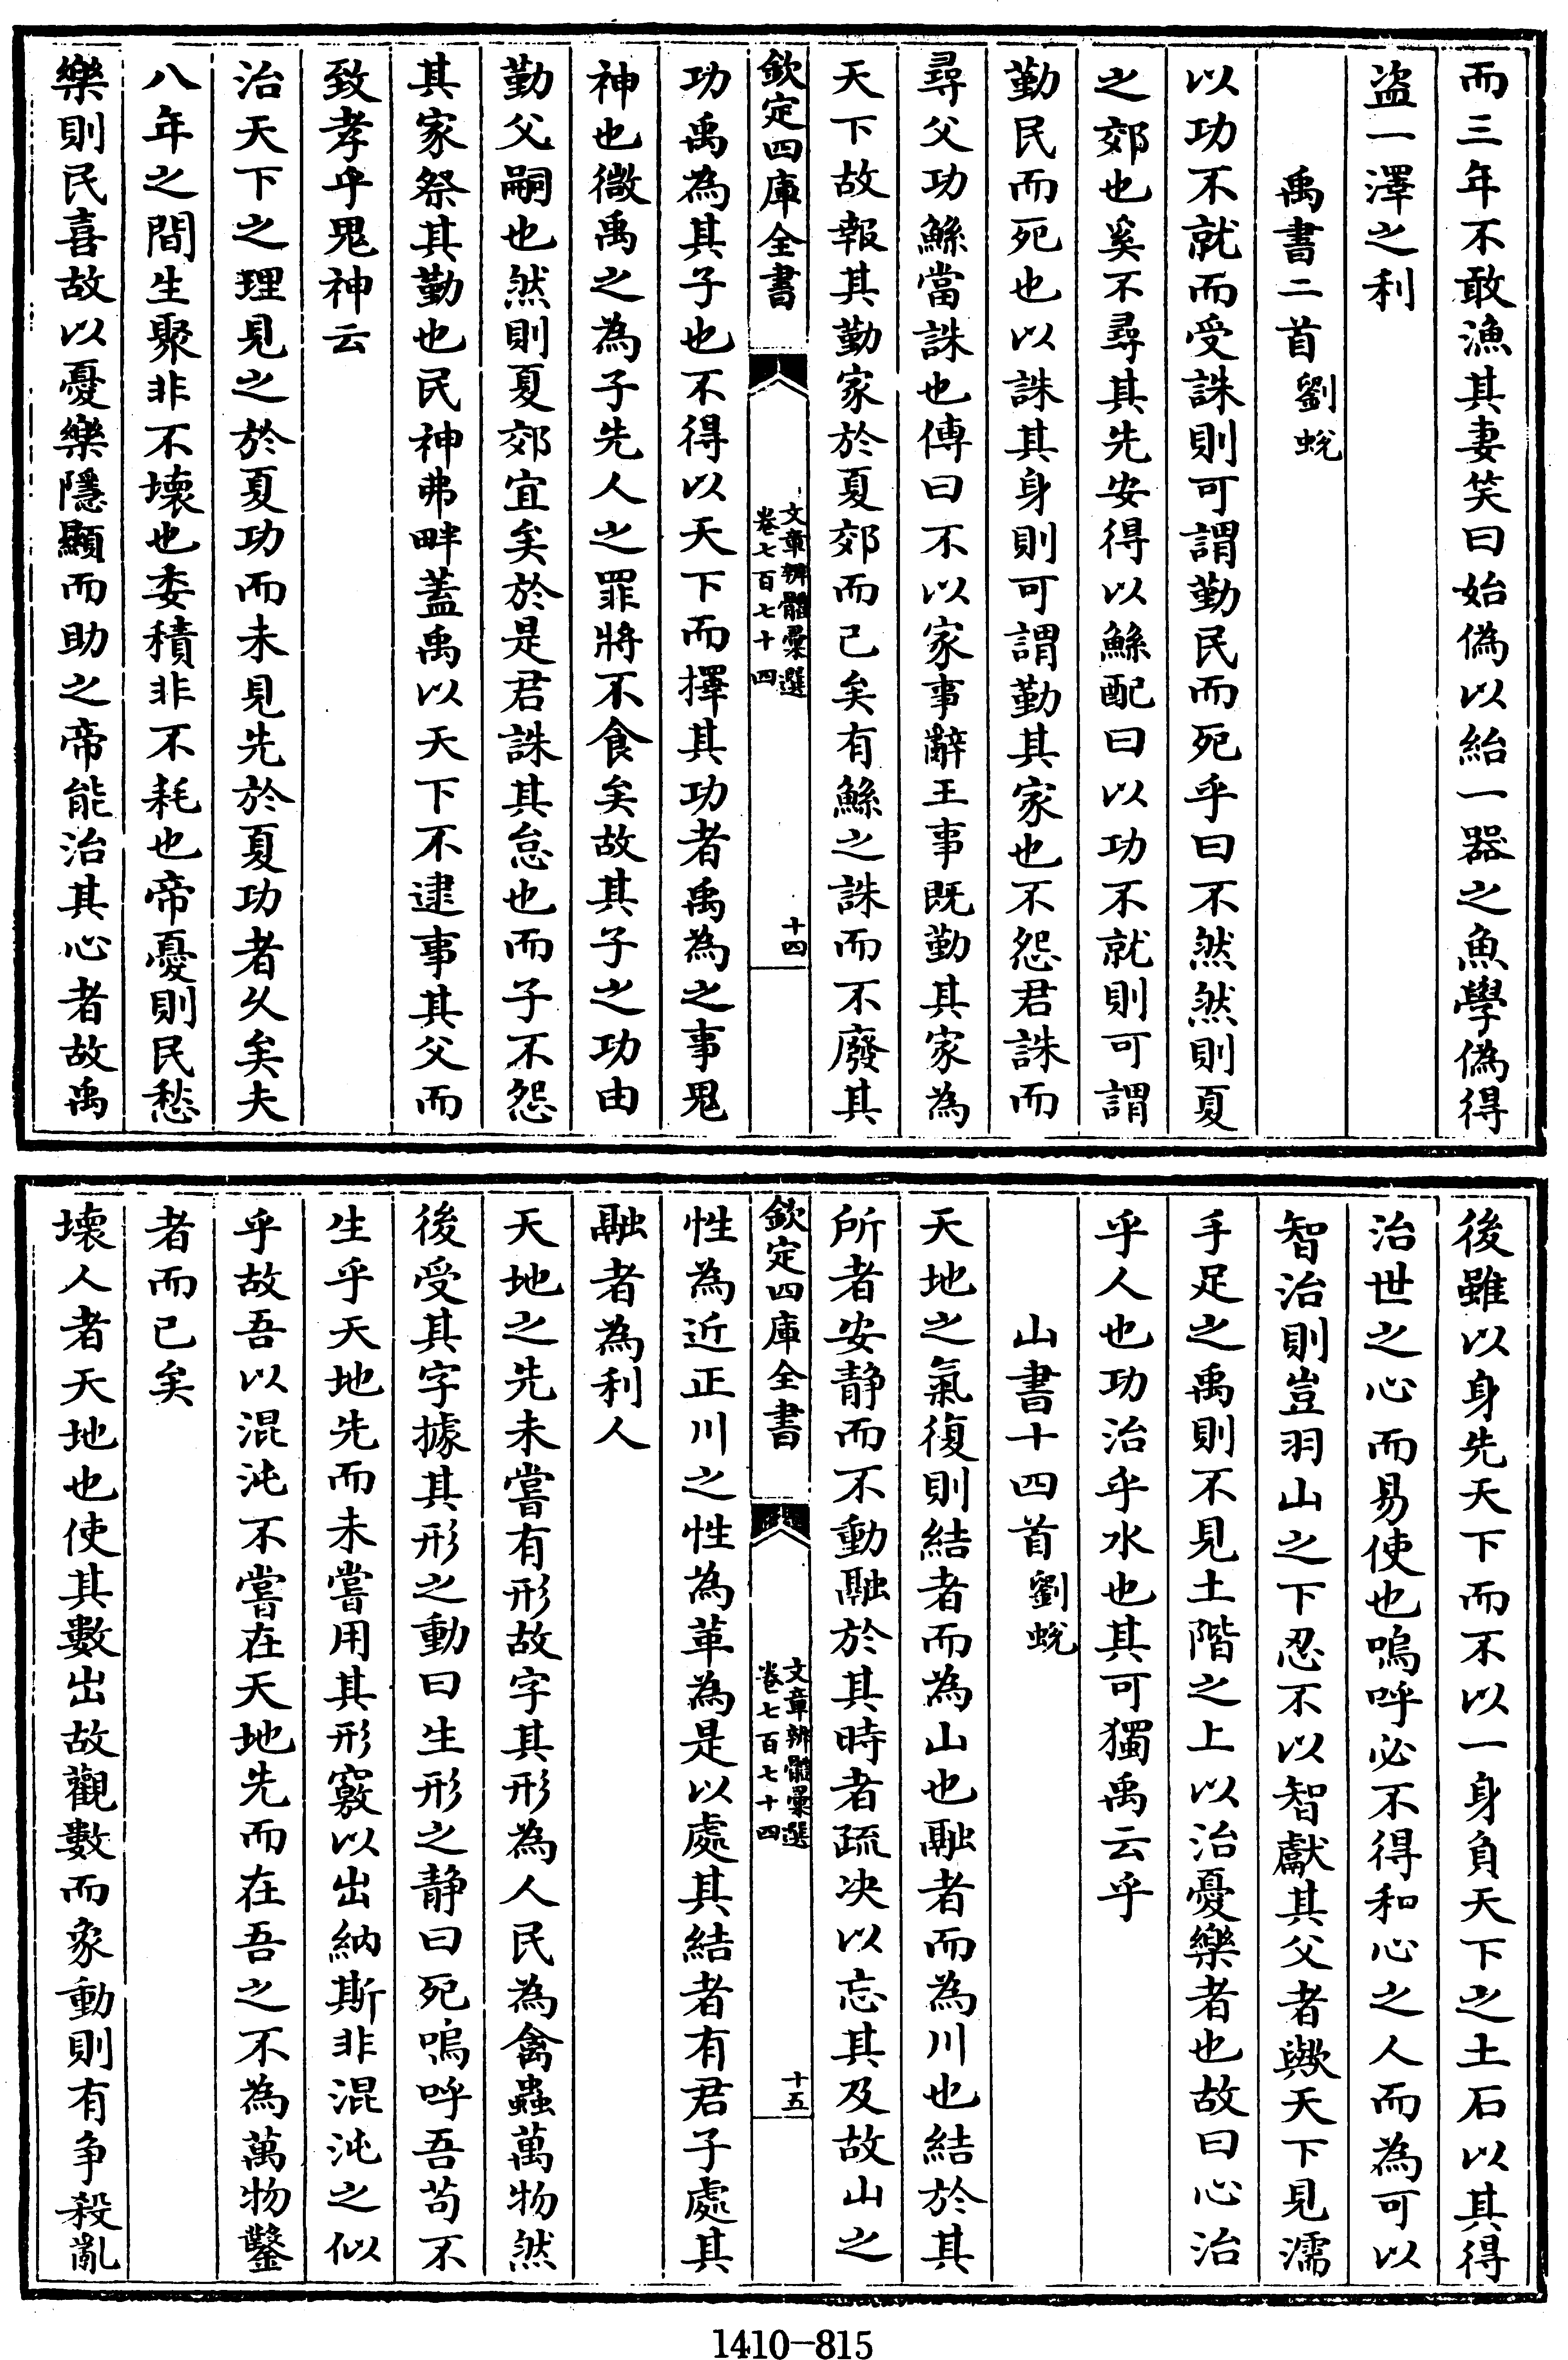 而三年不敢漁其妻笑曰始偽以紿一器之魚學偽得
盜一澤之利
禹書二首 劉蛻
以功不就而受誅則可謂勤民而死乎曰不然然則夏
之郊也奚不尋其先安得以鯀配曰以功不就則可謂
勤民而死也以誅其身則可謂勤其家也不怨君誅而
尋父功鯀當誅也傳曰不以家事辭王事既勤其家為
天下故報其勤家於夏郊而已矣有鯀之誅而不廢其
欽定四庫全書 文章辨體彙選 卷七百七十四 十四
功禹為其子也不得以天下而擇其功者禹為之事鬼
神也微禹之為子先人之罪將不食矣故其子之功由
勤父嗣也然則夏郊宜矣於是君誅其怠也而子不怨
其家祭其勤也民神弗畔蓋禹以天下不逮事其父而
致孝乎鬼神云
治天下之理見之於夏功而未見先於夏功者久矣夫
八年之間生聚非不壞也委積非不耗也帝憂則民愁
樂則民喜故以憂樂隱顯而助之帝能治其心者故禹
後雖以身先天下而不以一身負天下之土石以其得
治世之心而易使也嗚呼必不得和心之人而為可以
智治則豈羽山之下忍不以智獻其父者歟天下見濡
手足之禹則不見土階之上以治憂樂者也故曰心治
乎人也功治乎水也其可獨禹云乎
山書十四首 劉蛻
天地之氣復則結者而為山也融者而為川也結於其
所者安靜而不動融於其時者疏決以忘其及故山之
欽定四庫全書 文章辨體彙選 卷七百七十四 十五
性為近正川之性為革為是以處其結者有君子處其
融者為利人
天地之先未嘗有形故字其形為人民為禽蟲萬物然
後受其字據其形之動曰生形之靜曰死嗚呼吾苟不
生乎天地先而未嘗用其形竅以出納斯非混沌之似
乎故吾以混沌不嘗在天地先而在吾之不為萬物鑿
者而已矣
壞人者天地也使其數出故觀數而象動則有爭殺亂
1410-815